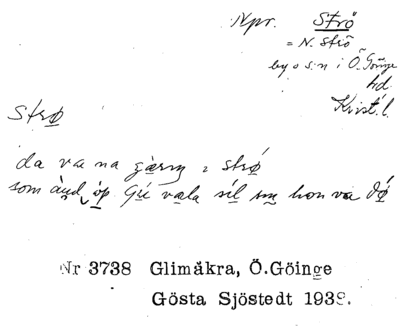 Npr. Strö
= N. Strö
by o s:n i Ö. Göinge
hd.
Krist. l.
strø
da va na gærng i strǿ
som àŋd óp Gú vala síl næ hon va dǿ
Nr 3738 Glimåkra, Ö.Göinge
Gösta Sjöstedt 1938.